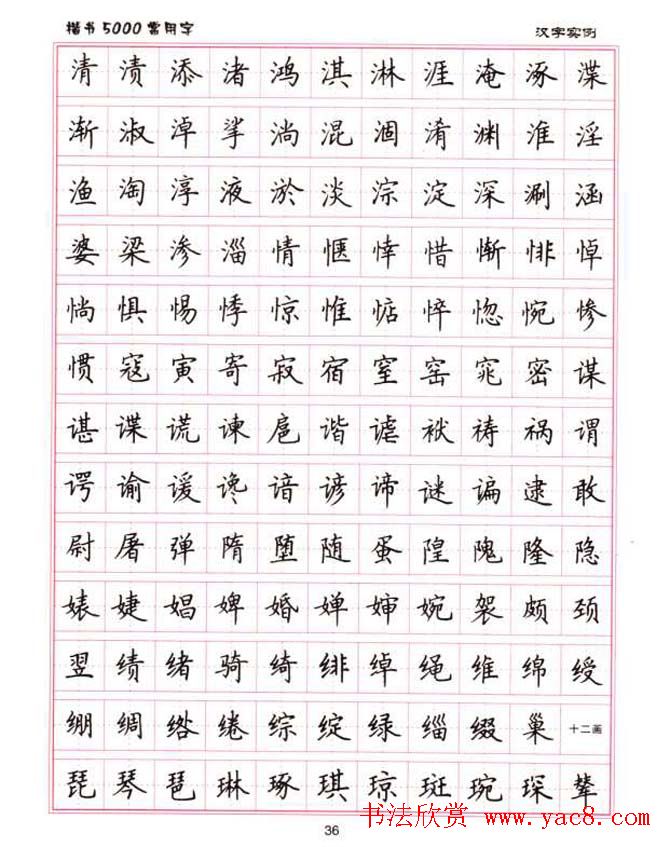 楷书5000常用字 汉字实例
清 渍 添 渚 鸿 淇 淋 涯 淹 涿 渫
渐 淑 淖 挲 淌 混 涸 淆 渊 淮 淫
渔 淘 淳 液 淤 淡 淙 淀 深 涮 涵
婆 梁 渗 淄 情 惬 悻 惜 惭 悱 悼
惝 惧 惕 悸 惊 惟 惦 悴 惚 惋 惨
惯 寇 寅 寄 寂 宿 窒 窑 窕 密 谋
谌 谍 谎 谏 扈 谐 谑 袱 祷 祸 谓
谔 谕 谖 谗 谙 谚 谛 谜 谝 逮 敢
尉 屠 弹 隋 堕 随 蛋 隍 隗 隆 隐
婊 婕 娼 婢 婚 婵 婶 婉 袈 颇 颈
翌 绩 绪 骑 绮 绯 绰 绳 维 绵 绶
绷 绸 绺 绻 综 绽 绿 缁 缀 巢 十二画
琵 琴 琶 琳 琢 琪 琼 斑 琬 琛 辇
36
书法欣赏 www.yac8.com